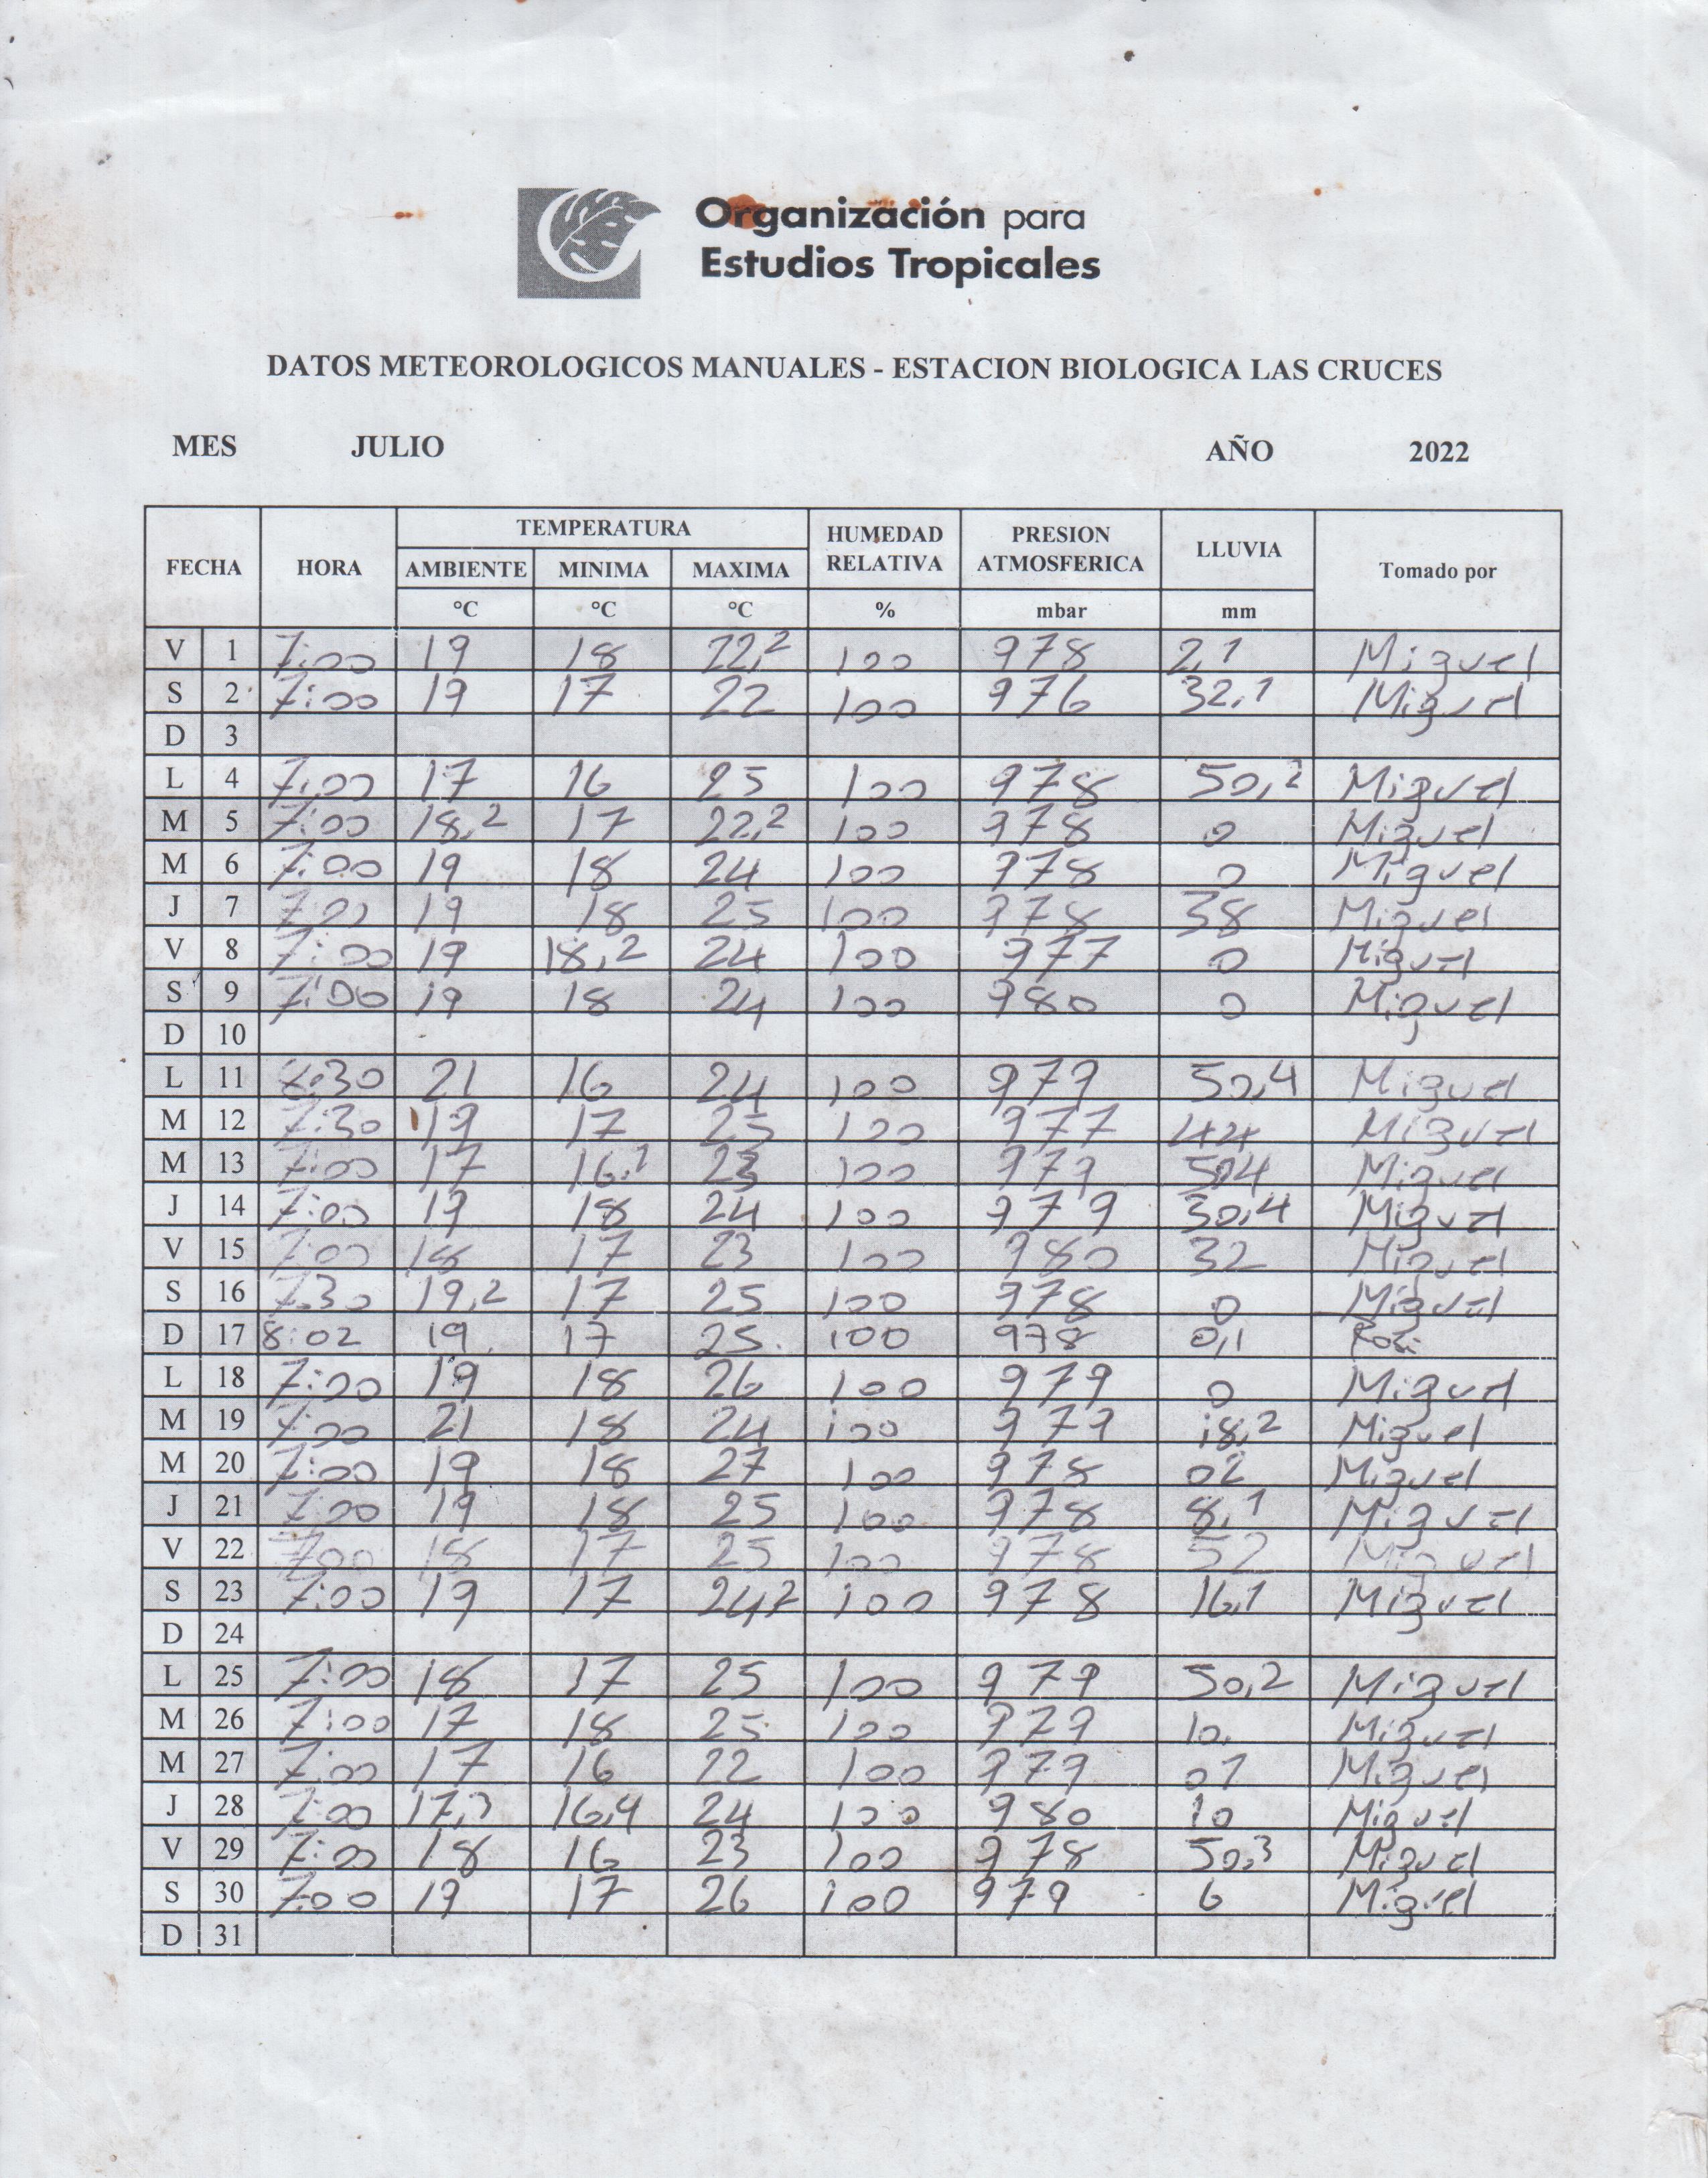 Organización para
Estudios Tropicales
DATOS METEOROLOGICOS MANUALES - ESTACION BIOLOGICA LAS CRUCES
MES JULIO AÑO 2022
FECHA HORA TEMPERATURA HUMEDAD RELATIVA PRESION ATMOSFERICA LLUVIA Tomado por
AMBIENTE MINIMA MAXIMA
°C °C °C % mbar mm
V 1 7:00 19 18 22,2 100 978 2,1 Miguel
S 2 7:00 19 17 22 100 976 32,1 Miguel
D 3
L 4 7:00 17 16 25 100 978 50,2 Miguel
M 5 7:00 18,2 17 22,2 100 978 0 Miguel
M 6 7:00 19 18 24 100 978 0 Miguel
J 7 7:00 19 18 25 100 978 38 Miguel
V 8 7:00 19 18,2 24 100 977 0 Miguel
S 9 7:00 19 18 24 100 980 0 Miguel
D 10
L 11 8:30 21 16 24 100 979 50,4 Miguel
M 12 7:30 19 17 25 100 977 44 Miguel
M 13 7:00 17 16,1 23 100 979 50,4 Miguel
J 14 7:00 19 18 24 100 979 30,4 Miguel
V 15 7:00 18 17 23 100 980 32 Miguel
S 16 7:30 19,2 17 25 100 978 0 Miguel
D 17 8:02 19 17 25 100 978 0,1
L 18 7:00 19 18 26 100 979 0 Miguel
M 19 7:00 21 18 24 100 979 18,2 Miguel
M 20 7:00 19 18 27 100 978 02 Miguel
J 21 7:00 19 18 25 100 978 8,1 Miguel
V 22 7:00 18 17 25 100 978 52 Miguel
S 23 7:00 19 17 24,2 100 978 16,1 Miguel
D 24
L 25 7:00 18 17 25 100 979 50,2 Miguel
M 26 7:00 17 18 25 100 979 10, Miguel
M 27 7:00 17 16 22 100 979 01 Miguel
J 28 7:00 17,3 16,4 24 100 980 10 Miguel
V 29 7:00 18 16 23 100 978 50,3 Miguel
S 30 7:00 19 17 26 100 979 6 Miguel
D 31